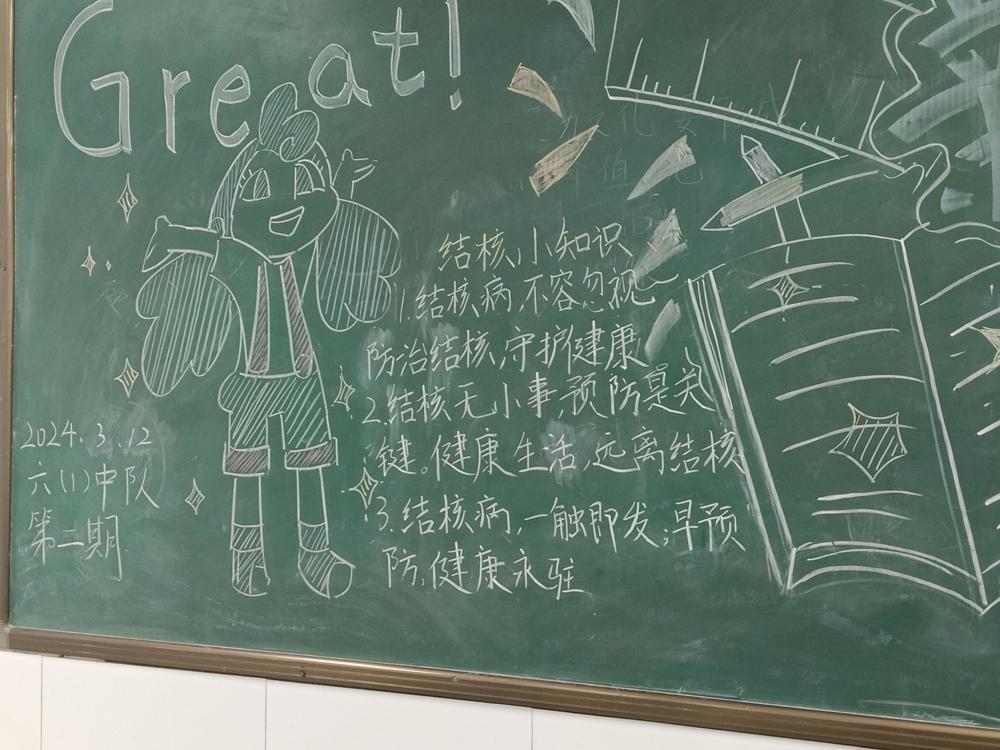 Great!
结核小知识
1.结核病,不容忽视
防治结核,守护健康
2.结核无小事,预防是关
键。健康生活,远离结核
3.结核病,一触即发,早预
防,健康永驻
2024.3.12
六(1)中队
第二期